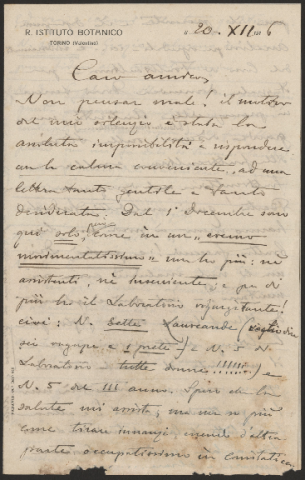 R. ISTITUTO BOTANICO
TORINO (Valentino)
20. XII. 6
Caro amico,
Non pensar male! il motivo
del mio silenzio è stata la
assoluta impossibilità a rispondere
con la calma conveniente, ad una
lettera tanto gentile e tanto
desiderata. Dal 1° Decembre sono
qui solo, come in un eremo
non ho più: nè
assistenti, nè inserviente; e per di
più ho il Laboratorio rigurgitante!
cioè: N. Sette Laureande (voglio dire
sei ragazze e 1 prete) e N. 5 di
Laboratorio tutte donne!!!!!!) e
N. 5 del III anno. Spero che la
salute mi assista; ma non so più
come tirare innanzi, essendo d'altra
parte occupatissimo in